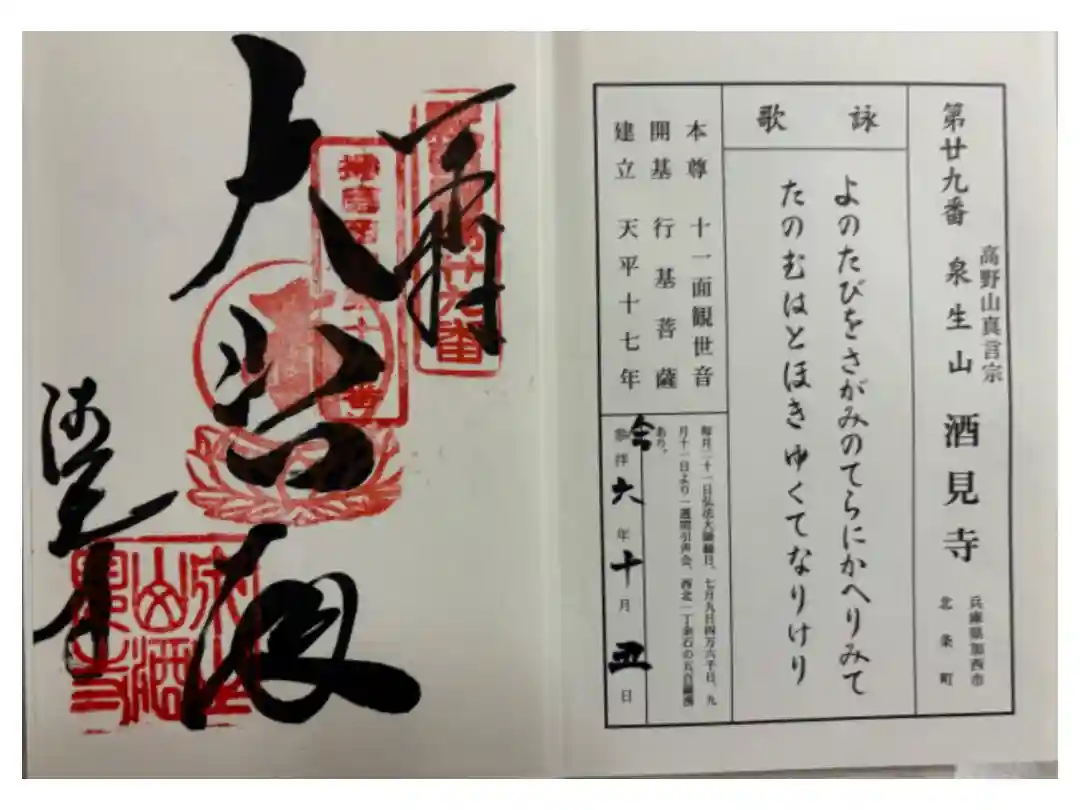 第廿九番 泉生山 酒見寺
高野山真言宗
兵庫県加西市
北条町
詠歌
よのたびをさがみのてらにかへりみて
たのむはとほきゆくてなりけり
本尊 十一面観世音
開基 行基菩薩
建立 天平十七年
毎月二十一日弘法大師縁日、七月九日四万六千日、九
月十一日より一週間引声会、西北一丁余石の五百羅漢
あり。
参拝 令六年十月五日
奉拝
大悲殿
酒見寺
廿九番
泉生山酒見寺